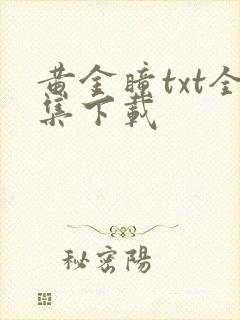 黄金瞳txt全
集下载
秘密陽